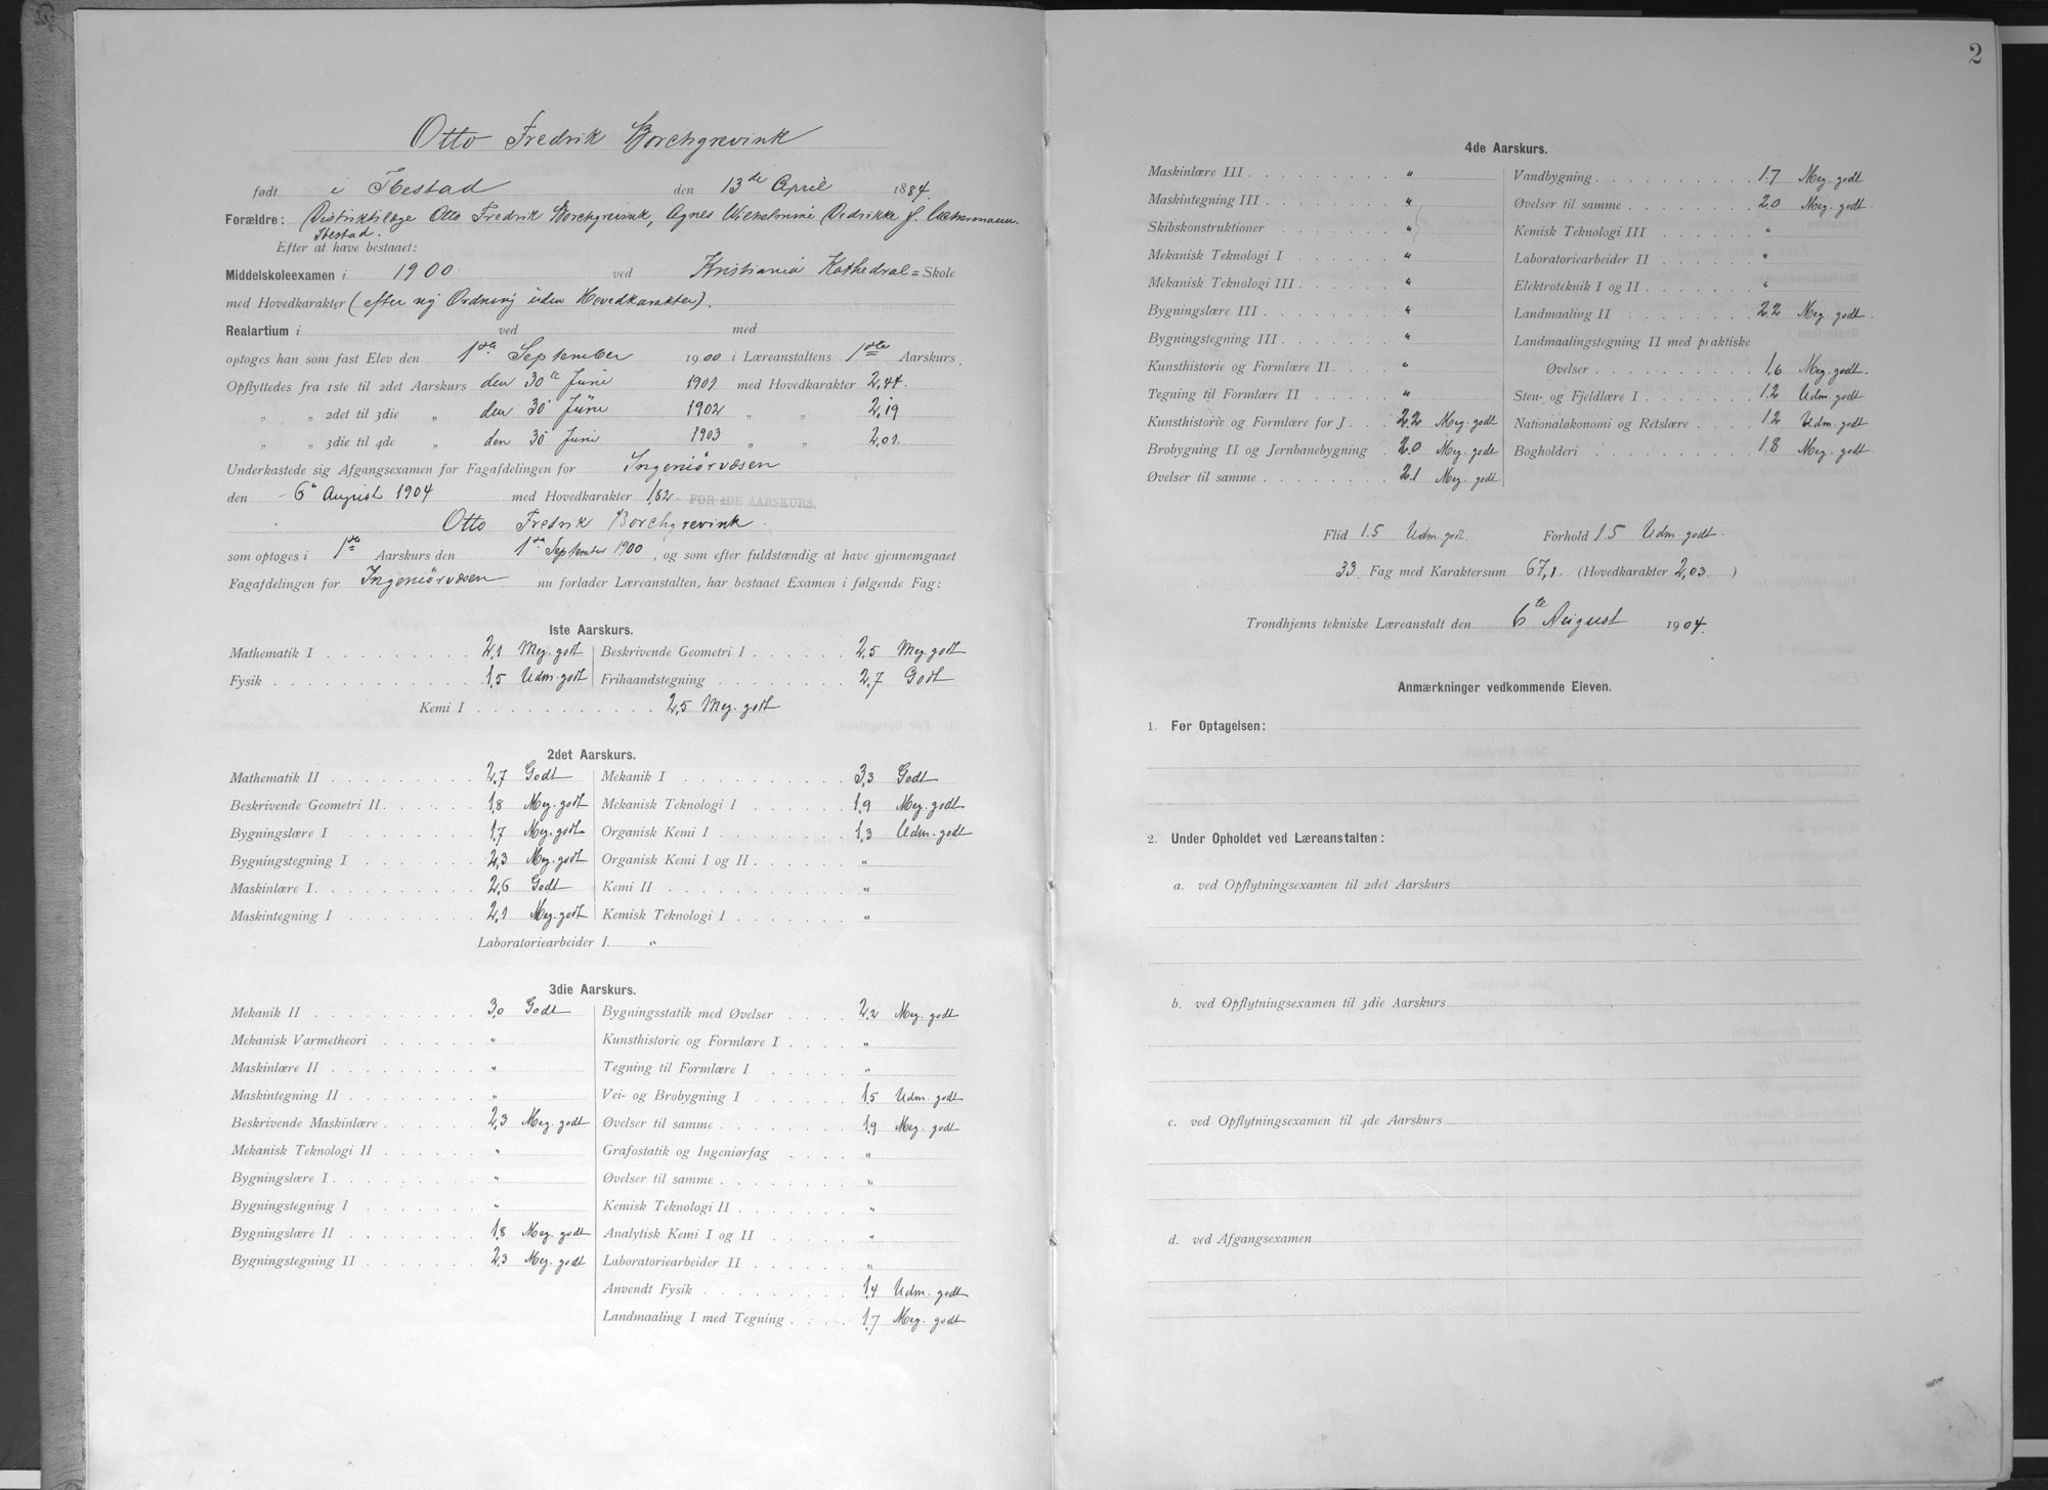 Otto Fredrik Borchgrevink
født i Ibestad den 13de April 1884.
Forældre: Distriktslæge Otto Fredrik Borchgrevink, Agnes Wilhelmine Didrikke f.
Ibestad.
Efter at have bestaaet:
Middelskoleexamen i 1900 ved Kristiania Kathedral=Skole
med Hovedkarakter (efter ny Ordning uden Hovedkarakter).
Realartium i ved med
optoges han som fast Elev den 1ste September 1900 i Læreanstaltens 1ste Aarskurs.
Opflyttedes fra 1ste til 2det Aarskurs den 30te Juni 1901 med Hovedkarakter 2,44.
„ „ 2det til 3die „ den 30 Juni 1902 „ „ 2,19
„ „ 3die til 4de „ den 30 Juni 1903 „ „ 2,01.
Underkastede sig Afgangsexamen for Fagafdelingen for Ingeniörvæsen
den 6te August 1904 med Hovedkarakter 1,82 FOR 4DE AARSKURS.
Otto Fredrik Borchgrevink.
som optoges i 1ste Aarskurs den 1ste September 1900, og som efter fuldstændig at have gjennemgaaet
Fagafdelingen for Ingeniörvæsen nu forlader Læreanstalten, har bestaaet Examen i følgende Fag:
1ste Aarskurs.
Mathematik I 2,1 Meg. godt
Fysik 1,5 Udm. godt
Beskrivende Geometri I 2,5 Meg. godt
Frihaandstegning 2,7 Godt
Kemi I 2,5 Meg. godt
2det Aarskurs.
Mathematik II 2,7 Godt
Beskrivende Geometri II 1,8 Meg. godt
Bygningslære I 1,7 Meg. godt
Bygningstegning I 2,3 Meg. godt
Maskinlære I 2,6 Godt
Maskintegning I 2,1 Meg. godt
Mekanik I 3,3 Godt
Mekanisk Teknologi I 1,9 Meg. godt
Organisk Kemi I 1,3 Udm. godt
Organisk Kemi I og II „
Kemi II „
Kemisk Teknologi I „
Laboratoriearbeider I „
3die Aarskurs.
Mekanik II 3,0 Godt
Mekanisk Varmetheori „
Maskinlære II „
Maskintegning II „
Beskrivende Maskinlære 2,3 Meg. godt
Mekanisk Teknologi II „
Bygningslære I „
Bygningstegning I „
Bygningslære II 1,8 Meg. godt
Bygningstegning II 2,3 Meg. godt
Bygningsstatik med Øvelser 2,2 Meg. godt
Kunsthistorie og Formlære I „
Tegning til Formlære I „
Vei- og Brobygning I 1,5 Udm. godt
Øvelser til samme 1,9 Meg. godt
Grafostatik og Ingeniørfag „
Øvelser til samme „
Kemisk Teknologi II „
Analytisk Kemi I og II „
Laboratoriearbeider II „
Anvendt Fysik 1,4 Udm. godt
Landmaaling I med Tegning 1,7 Meg. godt
2
4de Aarskurs.
Maskinlære III „
Maskintegning III „
Skibskonstruktioner „
Mekanisk Teknologi I „
Mekanisk Teknologi III „
Bygningslære III „
Bygningstegning III „
Kunsthistorie og Formlære II „
Tegning til Formlære II „
Kunsthistorie og Formlære for J. 2.2 Meg. godt
Brobygning II og Jernbanebygning 2.0 Meg. godt
Øvelser til samme 2.1 Meg. godt
Vandbygning 1.7 Meg. godt
Øvelser til samme 2.0 Meg. godt.
Kemisk Teknologi III „
Laboratoriearbeider II „
Elektroteknik I og II „
Landmaaling II 2.2 Meg. godt.
Landmaalingstegning II med praktiske
Øvelser 1.6 Meg. godt.
Sten- og Fjeldlære I 1.2 Udm. godt
Nationaløkonomi og Retslære 1.2 Udm. godt
Bogholderi 1.8 Meg. godt.
Flid 1.5 Udm. godt. Forhold 1.5 Udm. godt.
33 Fag med Karaktersum 67,1. (Hovedkarakter 2,03.)
Trondhjems tekniske Læreanstalt den 6te August 1904.
Anmærkninger vedkommende Eleven.
1. Før Optagelsen:
2. Under Opholdet ved Læreanstalten:
a. ved Opflytningsexamen til 2det Aarskurs
b. ved Opflytningsexamen til 3die Aarskurs
c. ved Opflytningsexamen til 4de Aarskurs
d. ved Afgangsexamen